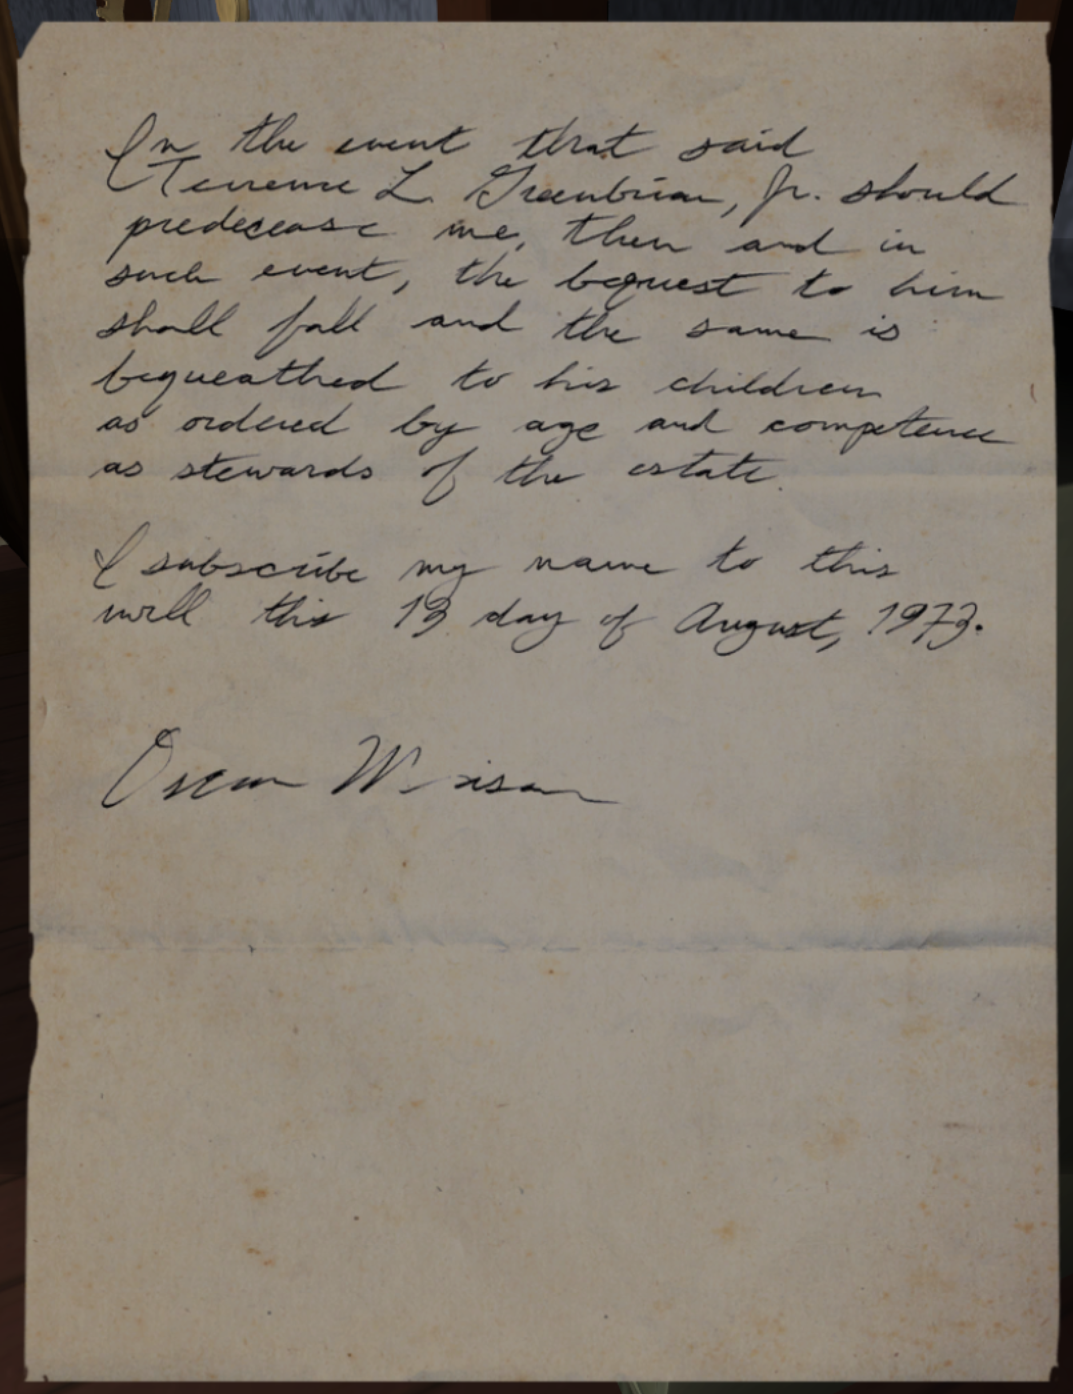 In the event that said
Terrence L. Greenbriar, Jr. should
predecease me, then and in
such event, the bequest to him
shall fall and the same is
bequeathed to his children
as ordered by age and competence
as stewards of the estate.
I subscribe my name to this
will this 13 day of August, 1973.
Oscar